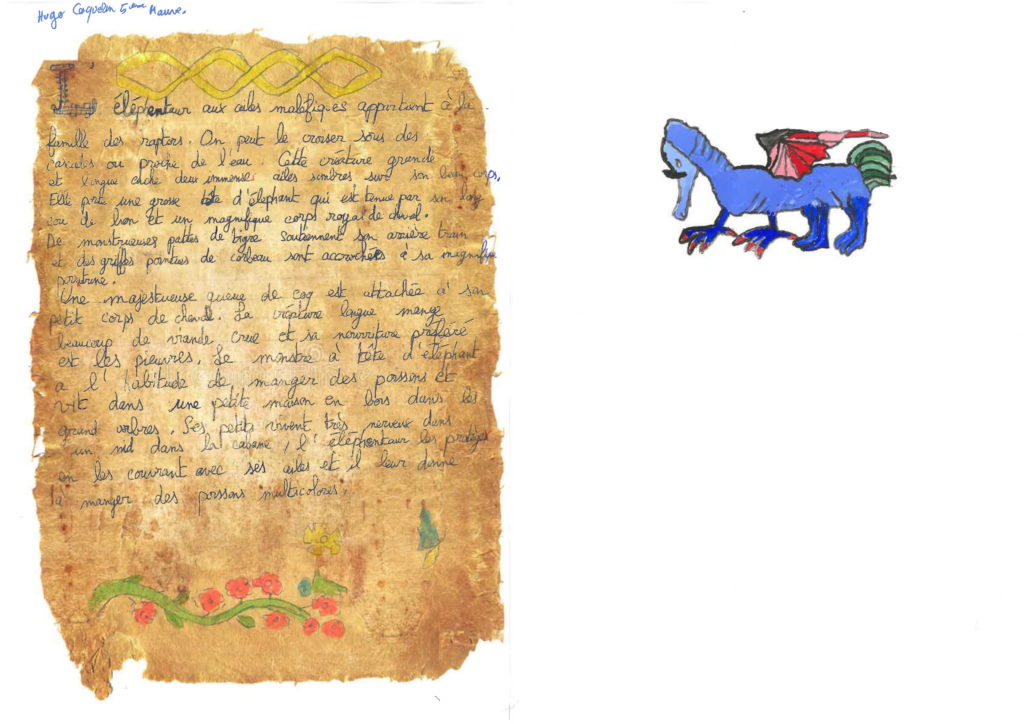 Hugo Coquelin 5ème Mauve.
L'éléphentaur aux ailes maléfiques appartient à la
famille des raptors. On peut le croiser sous des
cascades ou proche de l'eau. Cette créature grande
et longue cache deux immense ailes sombres sur son beau corps.
Elle porte une grosse tête d'éléphant qui est tenue par son long
cou de lion et un magnifique corps royal de cheval.
De monstrueuses pattes de tigre soutiennent son arrière train
et des griffes pointues de corbeau sont accrochés a sa magnifique
poitrine.
Une majestueuse queue de coq est attachée a' son
petit corps de cheval. La créature longue mange
beaucoup de viande crue et sa nourriture préféré
est les pieuvres. Le monstre a tête d'éléphant
a l'habitude de manger des poissons et
vit dans une petite maison en bois dans les
grand arbres. Ses petits vivent très nerveux dans
un nid dans la cabane, l'éléphentaur les protèges
en les couvrant avec ses ailes et il leur donne
à manger des poissons multicolores.